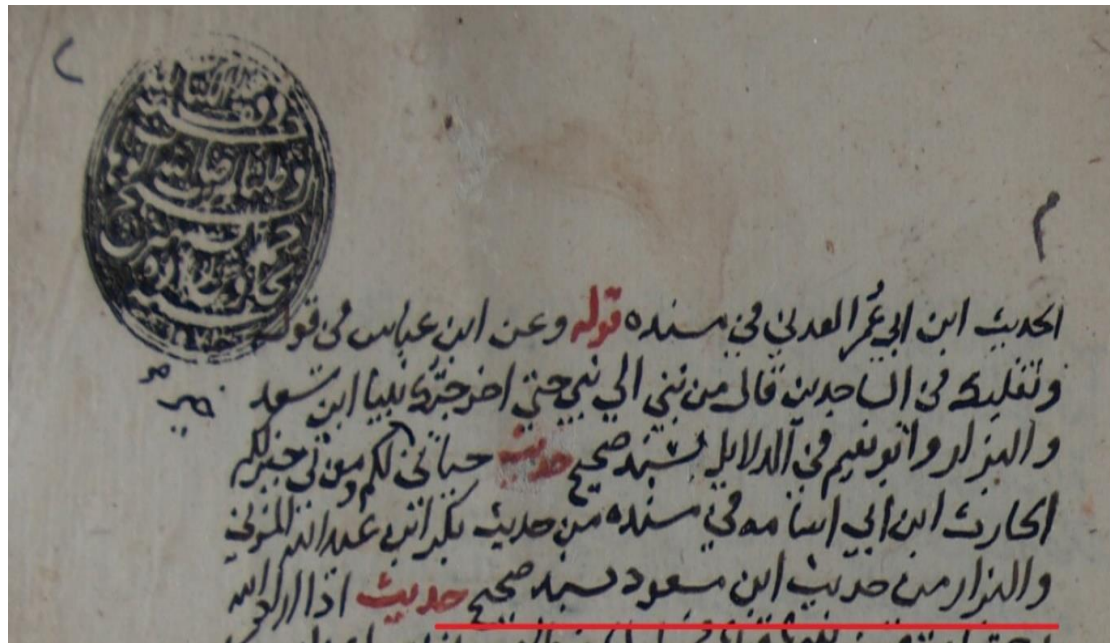 م
الحديث ابن ابي عُمر العدني في مسنده قوله وعن ابن عباس في قوله
وتقلبك في الساجدين قال من نبي الي نبي حتي اخرجتك نبيا ابن سعد
والبزار وابو نعيم في الدلايل بسند صحيح حديث حياتي لكم وموتي خير لكم
الحارث ابن ابي اسامه في مسنده من حديث بكر ابن عبد الله المزني
والبزار من حديث ابن مسعود بسند صحيح حديث اذا اراد الله